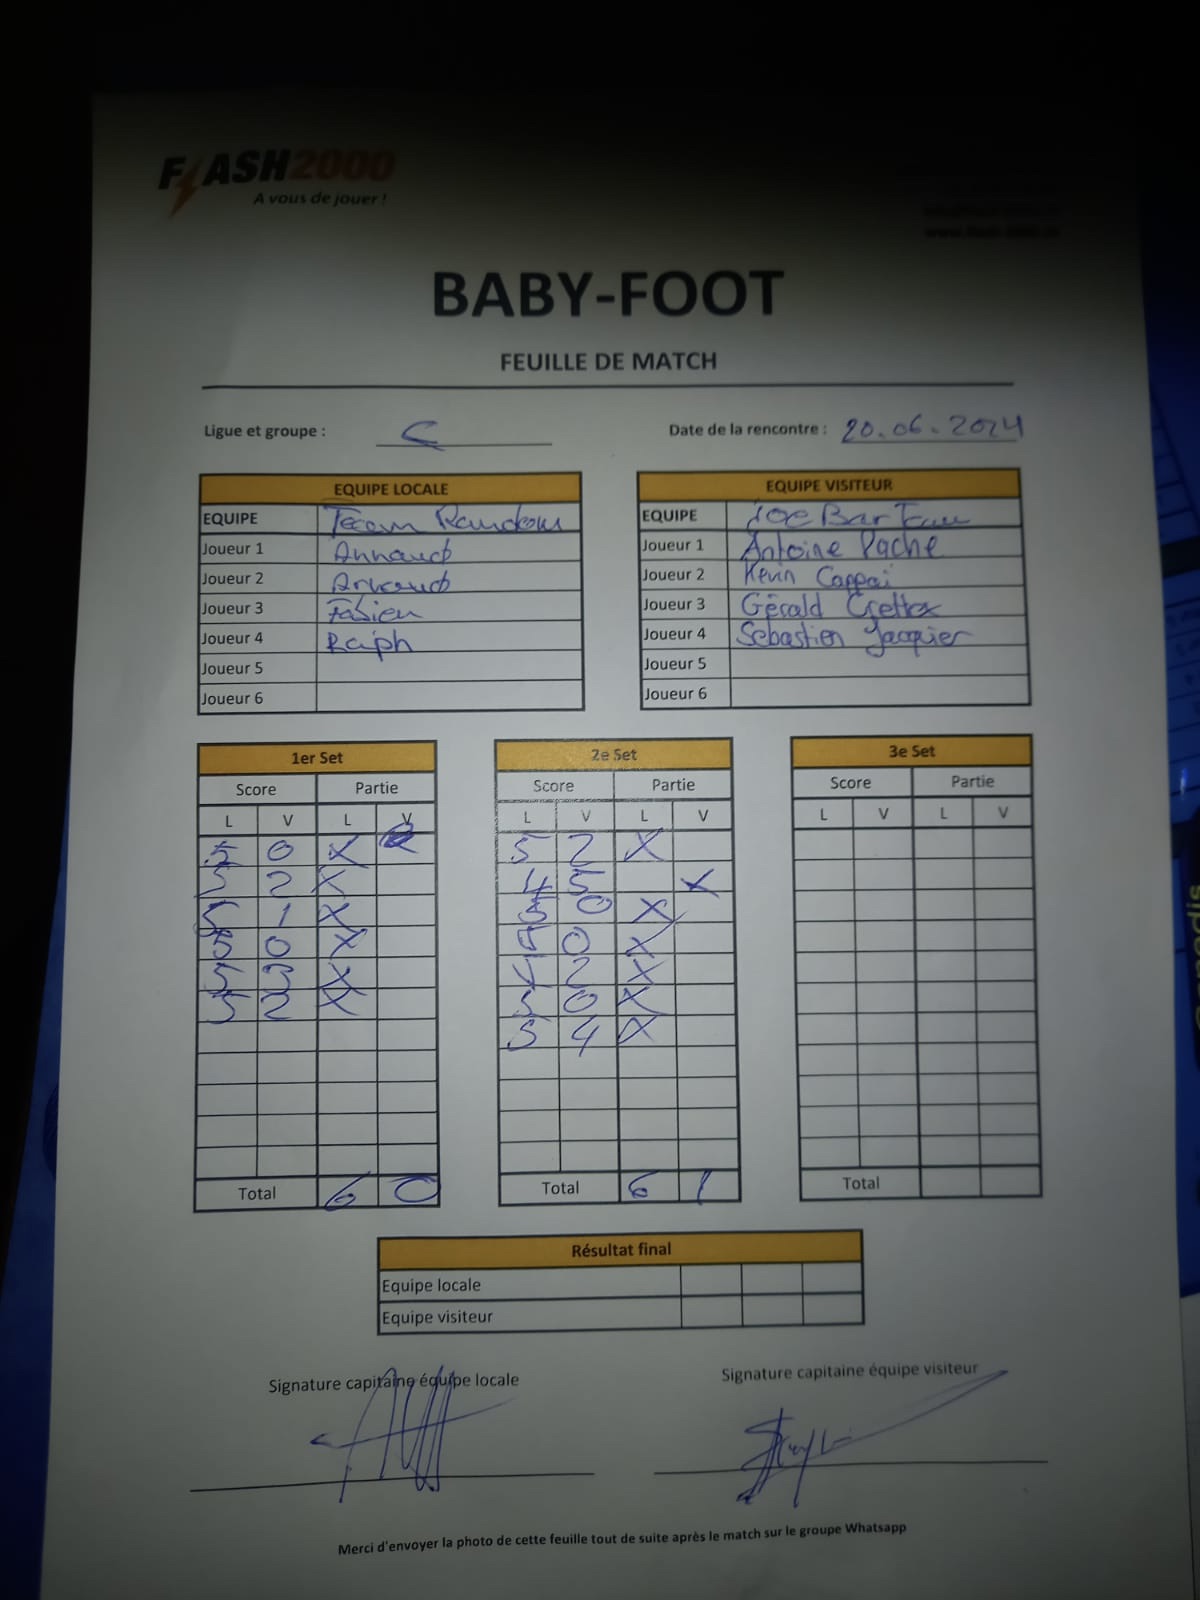 FLASH2000
A vous de jouer !
BABY-FOOT
FEUILLE DE MATCH
Ligue et groupe : C
Date de la rencontre : 20.06.2024
EQUIPE LOCALE
EQUIPE Team Random
Joueur 1 Arnaud
Joueur 2 Arnaud
Joueur 3 Fabien
Joueur 4 Raiph
Joueur 5
Joueur 6
EQUIPE VISITEUR
EQUIPE Joe Bar Team
Joueur 1 Antoine Pache
Joueur 2 Kevin Cappai
Joueur 3 Gérald Crettex
Joueur 4 Sébastien Jacquier
Joueur 5
Joueur 6
1er Set
Score Partie
L V L V
5 0 X
5 2 X
5 1 X
5 0 X
5 3 X
5 2 X
Total 6 0
2e Set
Score Partie
L V L V
5 2 X
4 5 X
5 0 X
5 0 X
5 2 X
5 0 X
5 4 X
Total 6 1
3e Set
Score Partie
L V L V
Total
Résultat final
Equipe locale
Equipe visiteur
Signature capitaine équipe locale
Signature capitaine équipe visiteur
Merci d'envoyer la photo de cette feuille tout de suite après le match sur le groupe Whatsapp